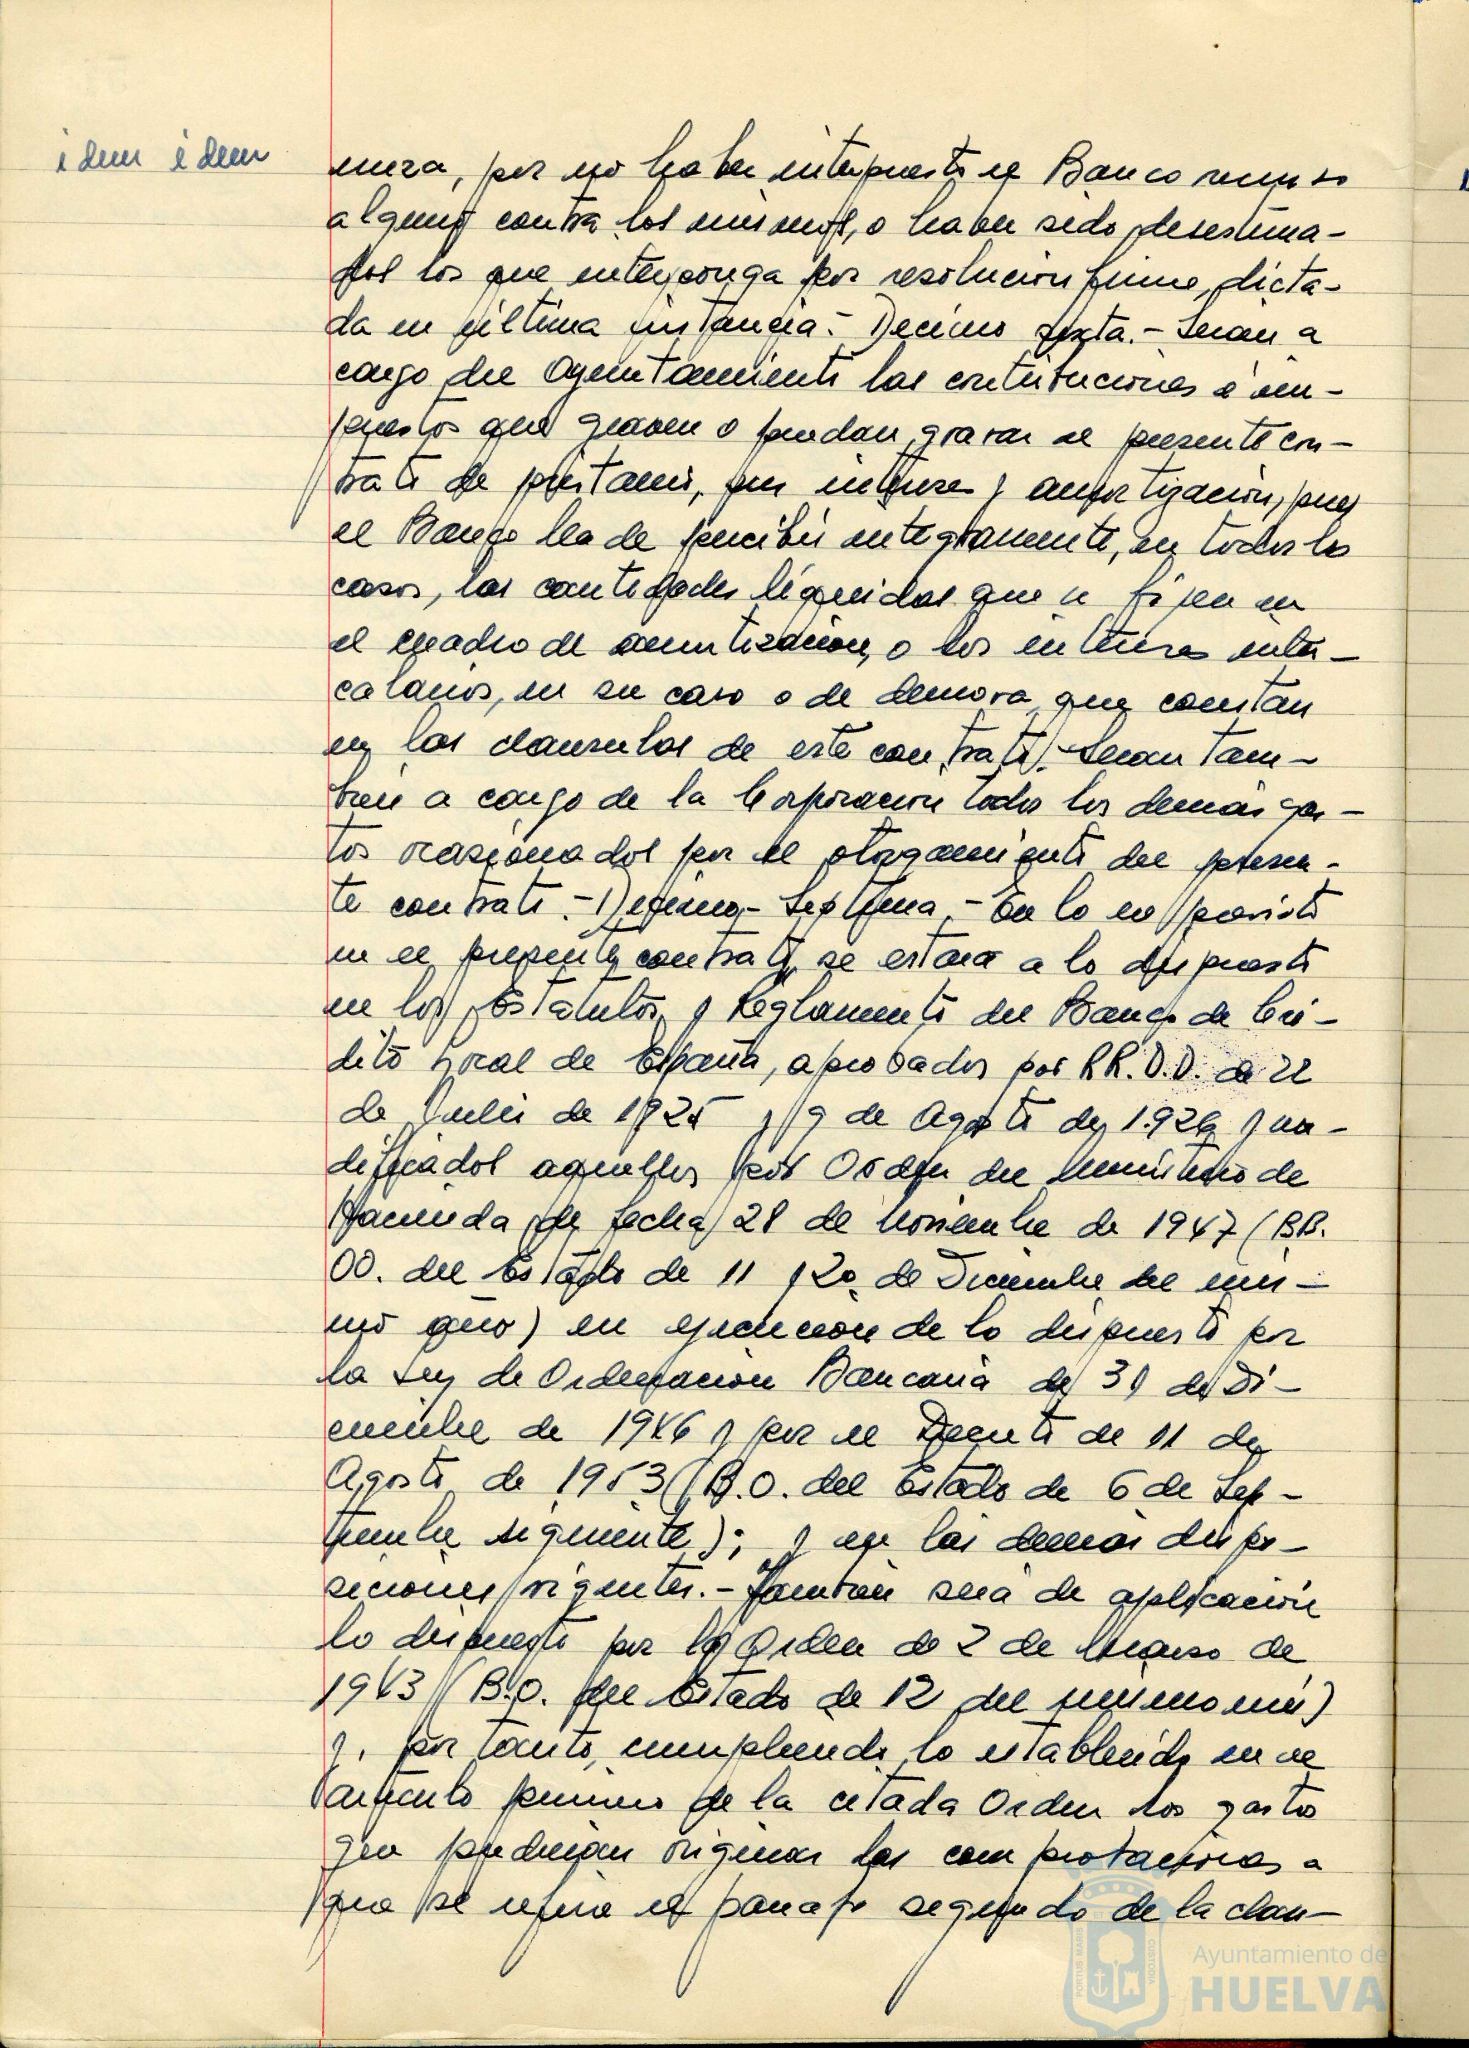 idem idem
meza, por no haber interpuesto el Banco recurso
alguno contra los mismos, o haber sido desestima-
dos los que interponga por resolución firme, dicta-
da en última instancia.- Décimo sexta.- Serán a
cargo del Ayuntamiento las contribuciones e im-
puestos que graven o puedan gravar el presente con-
trato de préstamo, sus intereses y amortización, pues
el Banco ha de percibir integramente, en todos los
casos, las cantidades líquidas que se fijen en
el cuadro de amortización, o los intereses inter-
calarios, en su caso o de demora, que constan
en las clausulas de este contrato.- Seran tam-
bién a cargo de la Corporación todos los demás gas-
tos ocasionados por el otorgamiento del presen-
te contrato.- Décimo-Septima.- En lo no previsto
en el presente contrato, se estará a lo dispuesto
en los Estatutos y Reglamento del Banco de Cré-
dito Local de España, aprobados por RR.D.D. de 22
de Julio de 1925 y 9 de Agosto de 1.926 y mo-
dificados aquellos por Orden del Ministerio de
Hacienda de fecha 28 de Noviembre de 1947 (BB.
OO. del Estado de 11 y 20 de Diciembre del mis-
mo año) en ejecución de lo dispuesto por
la Ley de Ordenación Bancaria de 31 de Di-
ciembre de 1946 y por el Decreto de 11 de
Agosto de 1953 (B.O. del Estado de 6 de Sep-
tiembre siguiente); y en las demás dispo-
siciones vigentes.- También será de aplicación
lo dispuesto por la Orden de 2 de Marzo de
1943 (B.O. del Estado de 12 del mismo mes)
y, por tanto, cumpliendo lo establecido en el
artículo primero de la citada Orden los gastos
que pudieran originar las comprobaciones a
que se refiere el parrafo segundo de la clau-
Ayuntamiento de
HUELVA
PORTUS MARIS ET CUSTODIA